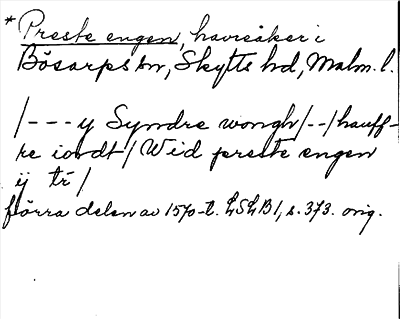 * Preste engen, havreåker i
Bösarps sn, Skytts hd, Malm. l.
/--- y Syndre wongh /--/ hauff-
re iordt / Wid preste engen
ij tr /
förra delen av 1570-t. LSLB 1, s. 373. orig.